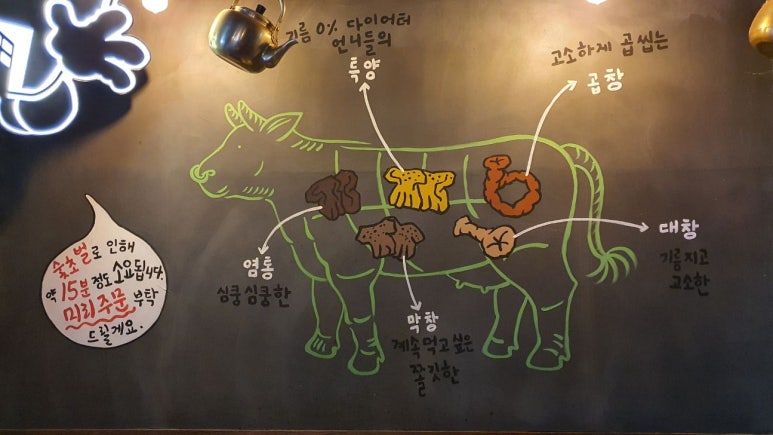 기름 0% 다이어터
언니들의
특양
고소하게 곱씹는
곱창
염통
심쿵심쿵한
막창
계속 먹고 싶은
쫄깃한
대창
기름지고
고소한
숯초벌로 인해
약 15분 정도 소요됩니다.
미리 주문 부탁
드릴게요.